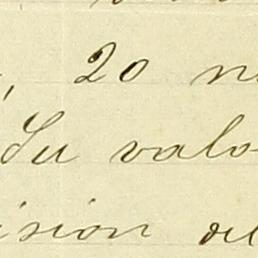 , 20
Su valo
ision